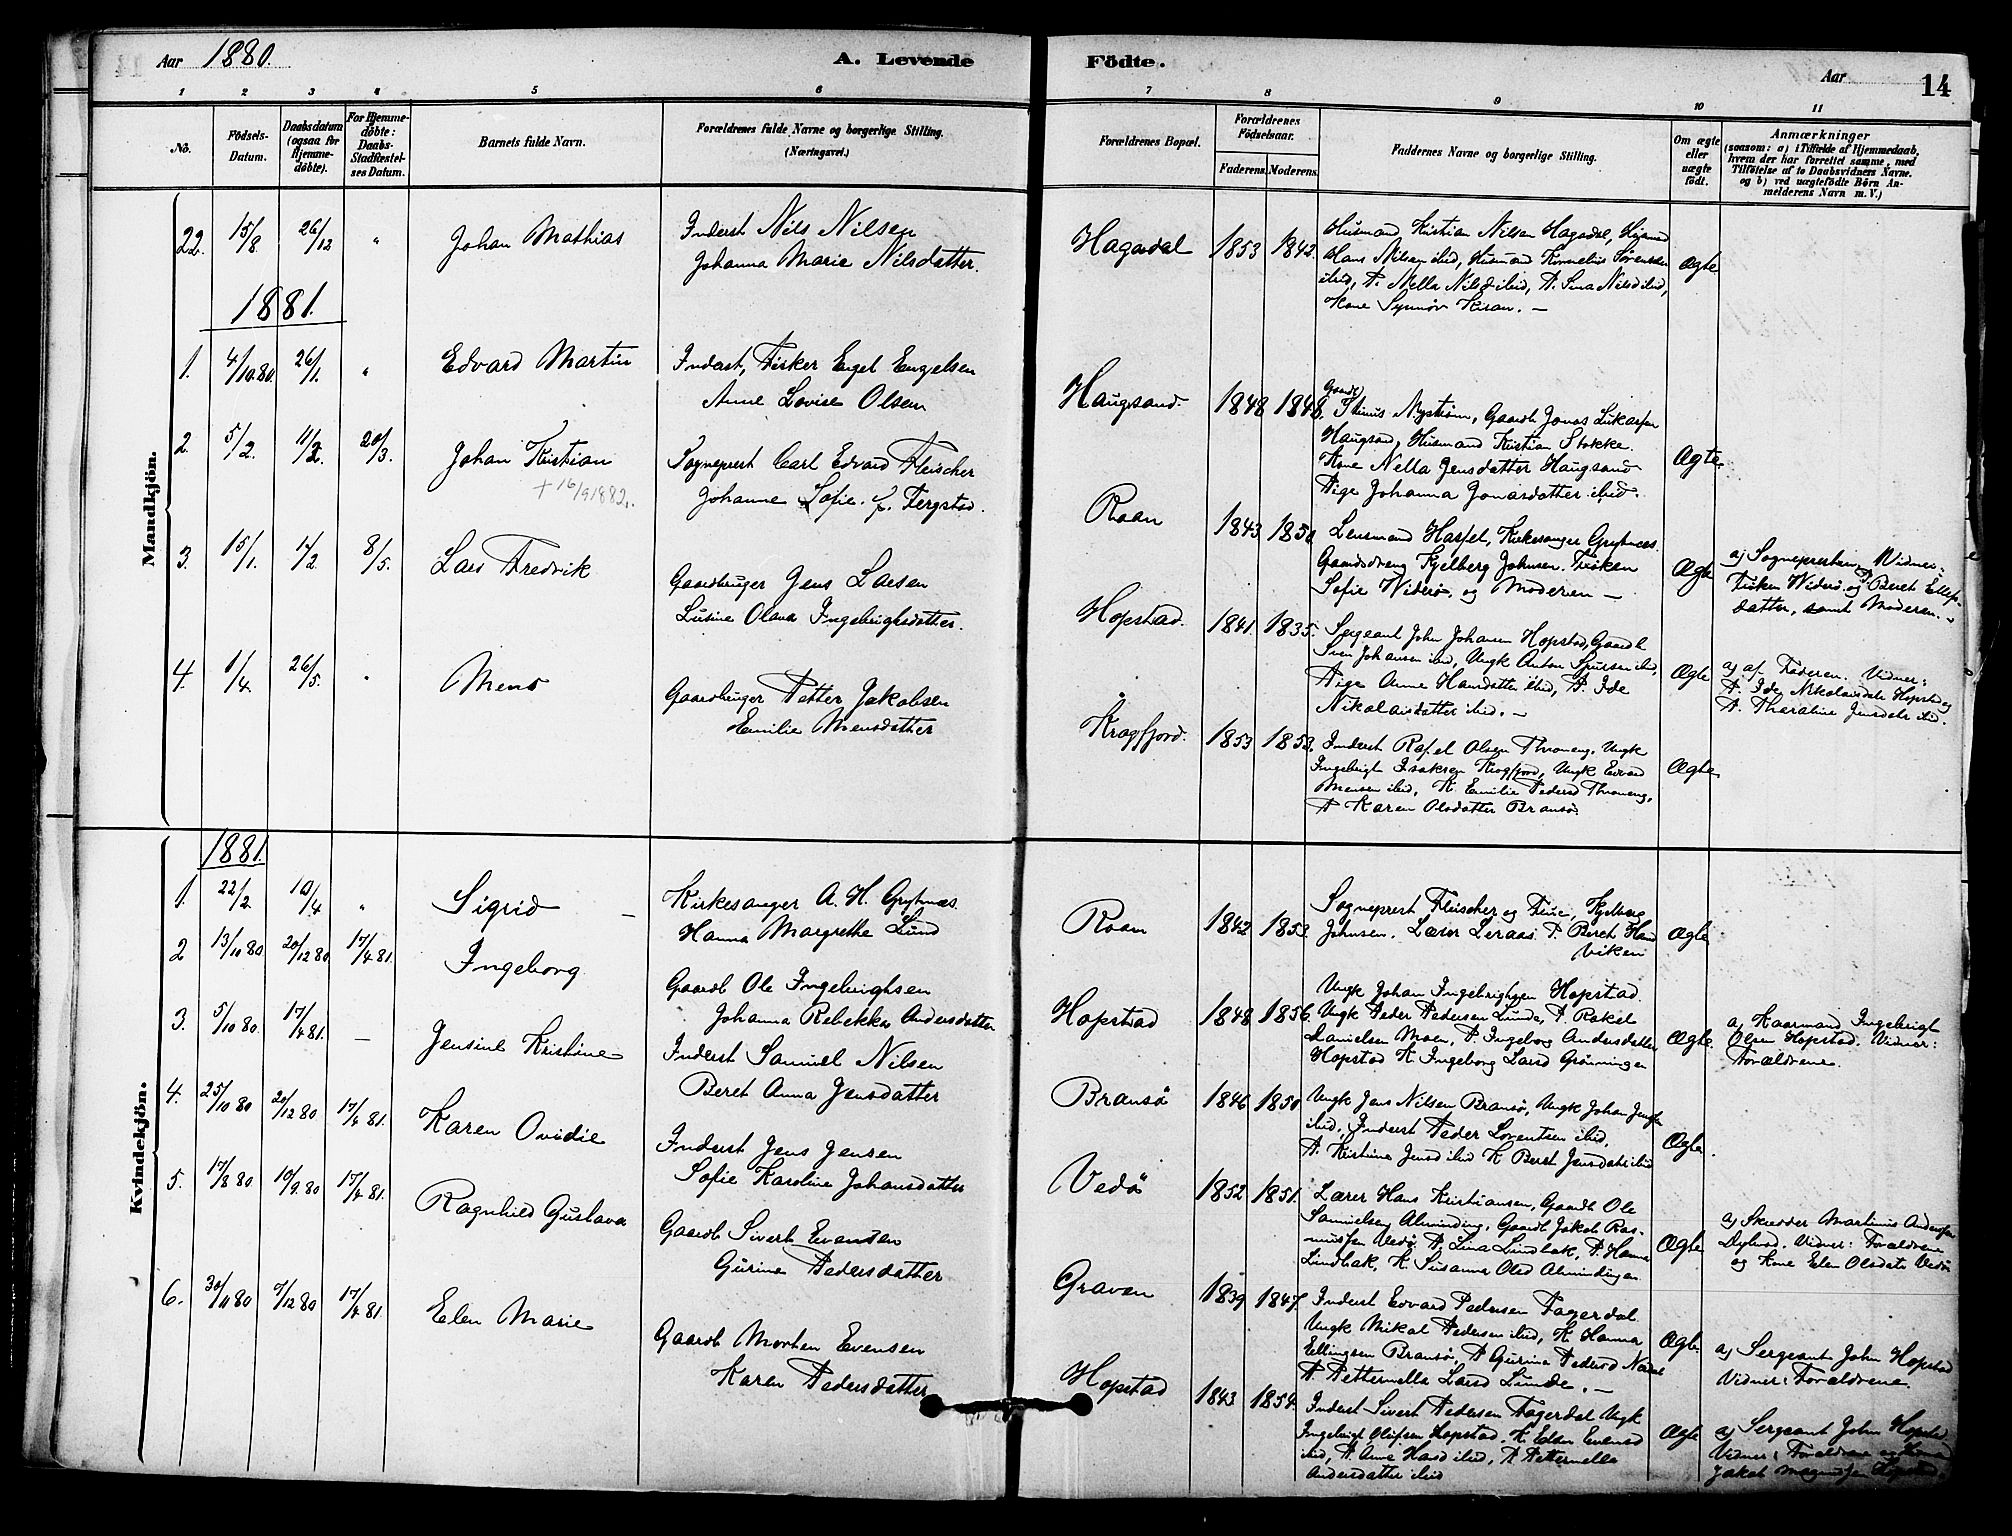 Aar 1880.
A. Levende
Födte.
Aar
14
1 2 3 4 5 6 7 8 9 10 11
No.
Födsels-Datum.
Daabsdatum (ogsaa for Hjemme-döbte).
For Hjemme-döbte: Daabs-Stadfæstel-ses Datum.
Barnets fulde Navn.
Forældrenes fulde Navne og borgerlige Stilling.
(Næringsvei.)
Forældrenes Bopæl.
Forældrenes Födselsaar.
Faderens. Moderens.
Faddernes Navne og borgerlige Stilling.
Om ægte eller uægte födt.
Anmærkninger
(saasom: a) i Tilfælde af Hjemmedaab,
hvem der har forrettet samme, med
Tilföielse af to Daabsvidners Navne.
og b) ved uægtefödte Börn An-
melderens Navn m. V.)
Mandkjön.
22. 15/8 26/12 " Johan Mathias
Inderst Nils Nilsen
Johanna Marie Nilsdatter.
Hagardal 1853 1842.
Husmand Kristian Nilsen Hagadal,
Hans Nilsen ibid, Husmand Kornelius Sörensen
ibid, P. Nella Nilsd ibid, P. Sina Nilsd ibid,
Kone Synnöv Kiran. —
Ægte
1881.
1. 4/10.80. 26/1. " Edvard Martin
Inderst, Fisker Engel Engelsen
Anne Lovise Olsen
Haugsand. 1848 1848.
Gaardb
Nyström, Gaardb Jonas Lukassen
Haugsand, Husmand Kristian Stokke.
Kone Nella Jensdatter Haugsand
Pige Johanna Jonasdatter ibid.
Ægte.
2. 5/2. 11/2. 20/3. Johan Kristian
+ 16/9 1882.
Sogneprest Carl Edvard Fleischer
Johanne Sofie f. Fergstad.
Roan 1843 1850
Lensmand Hasfet, Kirkesanger Grytnæs.
Gaardsdreng Kjelberg Johnsen. Fröken
Sofie Wideröe, og Moderen —
Ægte
a) Sognepresten. Vidner:
Fröken Wideröe og Beret Ellefs-
datter, samt Moderen. -
3. 15/1. 14/2. 8/5. Lars Fredrik
Gaardbruger Jens Larsen
Lusine Olava Ingebrigtsdatter.
Hopstad. 1841. 1835.
Sergeant John Johansen Hopstad, Gaardb
Sven Johansen ibid, Ungk Anton Sjursen ibid,
Pige Anne Hansdatter ibid, P. Ide
Nikolaisdatter ibid. —
Ægte
a) af Faderen. Vidner:
P. Ide Nikolaisdatr Hopstad og
P. Theraline Jensdatr ibid.
4. 1/4. 26/5. " Mens
Gaardbruger Petter Jakobsen
Emilie Mensdatter
Kragfjord. 1853 1853.
Inderst Rafel Olsen Thröneng. Ungk
Ingebrigt Isaksen Kragfjord, Ungk Edvard
Mensen ibid, K. Emilie Pedersd Thröneng,
P. Karen Olsdatter Bransö.
Ægte
Kvindekjön.
1881.
1 22/2. 10/4 " Sigrid —
Kirkesanger A. H. Grytnæs.
Hanna Margrethe Lund
Roan 1842 1853.
Sogneprest Fleischer og Frue, Kjelberg
Johnsen. Lærer Leraas. P. Beret Hand
viken
Ægte
2 13/11 80 20/12 80. 17/4 81. Ingeborg
Gaardb Ole Ingebrigtsen
Johanna Rebekka Andersdatter
Hopstad 1848 1856.
Ungk Johan Ingebrigtsen Hopstad.
Ungk Peder Pedersen Lunde, P. Rakel
Danielsen Moen, P. Ingeborg Andersdatter
Hopstad K. Ingeborg Larsd Grönningen
Ægte.
a) Kaarmand Ingebrigt
Olsen Hopstad. Vidner:
Forældrene.
3. 5/10 80. 17/4 81. — Jensine Kristine
Inderst Samuel Nilsen
Beret Anna Jensdatter
Bransö 1846 1850
Ungk Jens Nilsen Bransö, Ungk Johan Jensen
ibid, Inderst Peder Lorentsen ibid,
P. Kristine Jensd ibid K. Beret Jensdatr ibid
Ægte.
4. 25/10 80 20/12 80 17/4 81. Karen Ovidie
Inderst Jens Jensen
Sofie Karoline Johansdatter
Vedö 1852 1851.
Lærer Hans Kristiansen, Gaardb Ole
Samuelsen Alminding, Gaardb Jakob Ras-
mussen Vedö. P. Lina Lindbak, P. Hanna
Lindbak, K. Susanna Olsd Almindingen
Ægte
a) Skrædder Martinus Andersen
Vidner: Forældrene
og Kone Elen Olsdatr Vedö
5. 17/8 80 10/9. 80 17/4 81. Ragnhild Gustava
Gaardb Sivert Evensen
Gurine Pedersdatter
Graven 1839 1847.
Inderst Edvard Pedersen Fagerdal
Ungk Mikal Pedersen ibid, K. Hanna
Ellingsen Bransö, P. Gurina Pedersd
P. Petternella Larsd Lunde. —
Ægte.
a) Sergeant John Hopstad
Vidner: Forældrene.
6. 30/11 80 7/12 80 17/4 81. Elen Marie
Gaardb Morten Evensen
Karen Pedersdatter
Hopstad 1843 1854.
Inderst Sivert Pedersen Fagerdal Ungk
Ingebrigt Olufsen Hopstad. K. Ellen Evensd
ibid, P. Anne Hansd ibid, P. Petternella
Andersdatter ibid
Ægte
a) Sergeant John Hopstad
Vidner: Forældrene og Kone
Jakob Magnussen Hopstad.